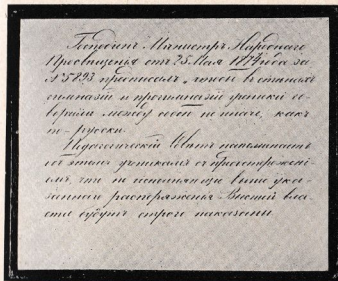 Господинъ Министръ Народнаго
Просвѣщенія отъ 25 Мая 1874 года за
№ 5823 предписалъ, чтобы въ стѣнахъ
гимназіи и прогимназіи ученики го-
ворили между собою не иначе, какъ
по-русски.
Педагогическій Совѣтъ напоминаетъ
объ этомъ ученикамъ съ предостереженi-
емъ, что не исполняющіе выше ука-
заннаго распоряженія Высшей вла-
сти будутъ строго наказаны